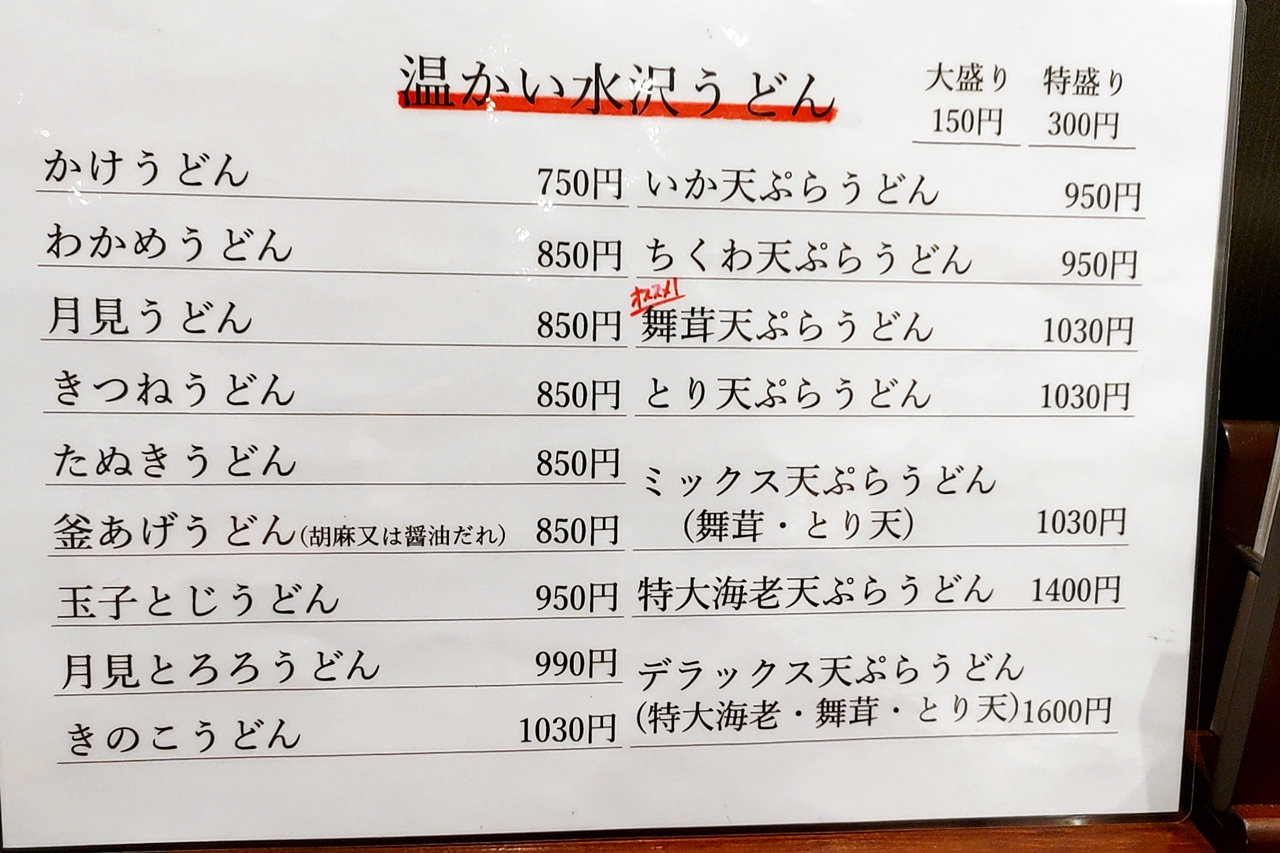 温かい水沢うどん
大盛り 特盛り
150円 300円
かけうどん 750円
わかめうどん 850円
月見うどん 850円
きつねうどん 850円
たぬきうどん 850円
釜あげうどん(胡麻又は醤油だれ) 850円
玉子とじうどん 950円
月見とろろうどん 990円
きのこうどん 1030円
いか天ぷらうどん 950円
ちくわ天ぷらうどん 950円
オススメ!
舞茸天ぷらうどん 1030円
とり天ぷらうどん 1030円
ミックス天ぷらうどん
(舞茸・とり天) 1030円
特大海老天ぷらうどん 1400円
デラックス天ぷらうどん
(特大海老・舞茸・とり天)1600円